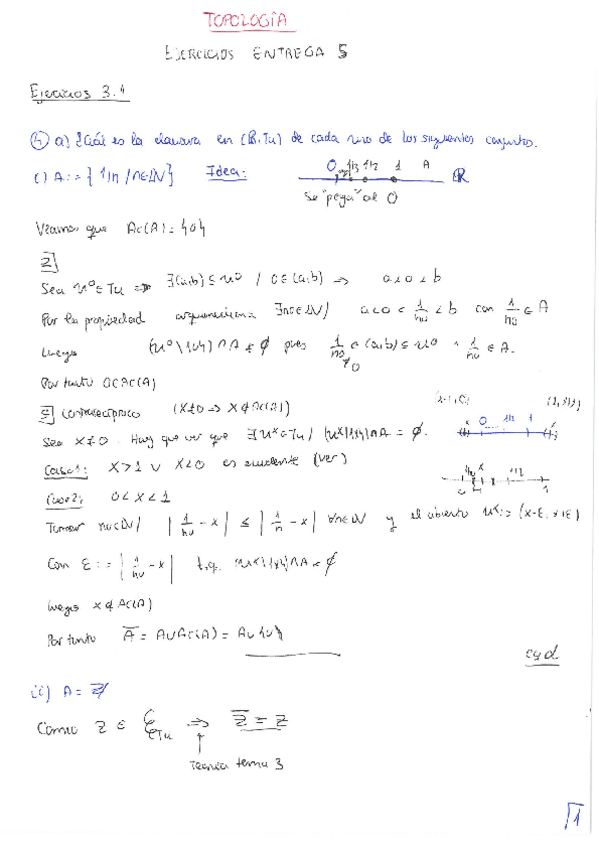 TOPOLOGÍA
EJERCICIOS ENTREGA 5
Ejercicios 3.4
4) a) ¿Cuál es la clausura en (R,Tu) de cada uno de los siguientes conjuntos.
i) A := { 1/n / n∈ℕ } Idea: 0 1/3 1/2 1 A ℝ
Se "pega" al 0
Veamos que Ac(A) = {0}
⊇
Sea U⁰ ∈ Tu ⇒ ∃(a,b) ⊆ U⁰ / 0 ∈ (a,b) ⇒ a<0<b
Por la propiedad arquimediana ∃n₀∈ℕ / a<0< 1/n₀ <b con 1/n₀ ∈ A
Luego (U⁰\{0}) ∩ A ≠ ∅ pues 1/n₀ ∈ (a,b) ⊆ U⁰ ∧ 1/n₀ ∈ A.
≠0
Por tanto 0∈Ac(A)
⊆ Contrarecíproco (X≠0 ⇒ X∉Ac(A))
Sea X≠0. Hay que ver que ∃U^x∈Tu / (U^x\{x})∩A = ∅. 0 1/2 1
Caso 1: X>1 ∨ X<0 es evidente (ver)
Caso 2: 0<X<1
Tomar n₀∈ℕ / |1/n₀ - x| ≤ |1/n - x| ∀n∈ℕ y el abierto U^x := (x-ε, x+ε)
Con ε := |1/n₀ - x| t.q. (U^x\{x})∩A = ∅
Luego x∉Ac(A)
Por tanto Ā = A∪Ac(A) = A∪{0}
cqd
ii) A = ℤ
Como ℤ ∈ C_Tu ⇒ ℤ̄ = ℤ
Teoría tema 3
1